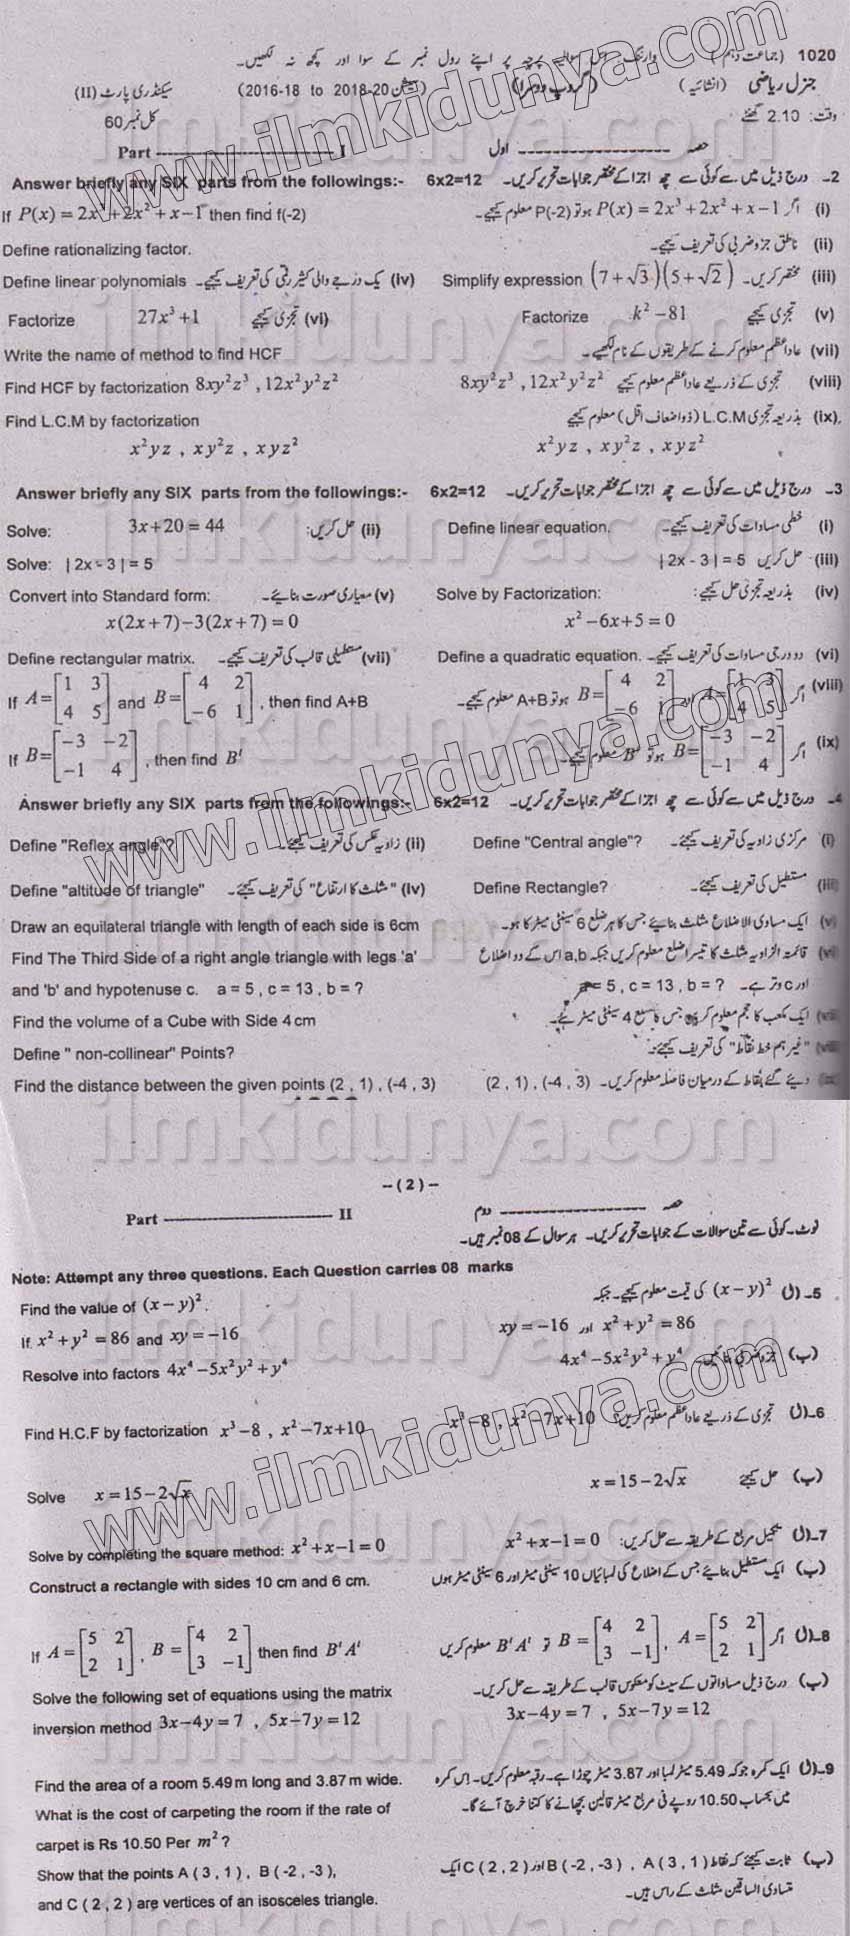 1020 (جماعت دہم) وارننگ :- اس سوالیہ پرچہ پر اپنے رول نمبر کے سوا اور کچھ نہ لکھیں۔
جنرل ریاضی (انشائیہ) (گروپ دوسرا) (سیشن 2016-18 to 2018-20) سیکنڈری پارٹ (II)
وقت: 2.10 گھنٹے کل نمبر 60
Part ---------- I حصہ ---------- اول
Answer briefly any SIX parts from the followings:- 6x2=12 2۔ درج ذیل میں سے کوئی سے چھ اجزا کے مختصر جوابات تحریر کریں۔
If P(x) = 2x³+2x²+x-1 then find f(-2) (i) اگر P(x) = 2x³+2x²+x-1 ہو تو P(-2) معلوم کیجیے۔
Define rationalizing factor. (ii) ناطق جزو ضربی کی تعریف کیجیے۔
Define linear polynomials (iv) یک درجے والی کثیر رقمی کی تعریف کیجیے۔ Simplify expression (7+√3)(5+√2) (iii) مختصر کریں۔
Factorize 27x³+1 (vi) تجزی کیجیے Factorize k²-81 (v) تجزی کیجیے
Write the name of method to find HCF (vii) عاداعظم معلوم کرنے کے طریقوں کے نام لکھیے۔
Find HCF by factorization 8xy²z³ , 12x²y²z² (viii) تجزی کے ذریعے عاداعظم معلوم کیجیے 8xy²z³ , 12x²y²z²
Find L.C.M by factorization (ix) بذریعہ تجزی L.C.M (ذواضعاف اقل) معلوم کیجیے
x²yz , xy²z , xyz² x²yz , xy²z , xyz²
Answer briefly any SIX parts from the followings:- 6x2=12 3۔ درج ذیل میں سے کوئی سے چھ اجزا کے مختصر جوابات تحریر کریں۔
Solve: 3x+20 = 44 (ii) حل کریں: Define linear equation. (i) خطی مساوات کی تعریف کیجیے۔
Solve: | 2x - 3 | = 5 (iii) حل کریں | 2x - 3 | = 5
Convert into Standard form: (v) معیاری صورت بنائیے۔ Solve by Factorization: (iv) بذریعہ تجزی حل کیجیے:
x(2x+7)-3(2x+7) = 0 x²-6x+5 = 0
Define rectangular matrix. (vii) مستطیلی قالب کی تعریف کیجیے۔ Define a quadratic equation. (vi) دو درجی مساوات کی تعریف کیجیے۔
If A=[1 3; 4 5] and B=[4 2; -6 1], then find A+B (viii) اگر A=[1 3; 4 5] اور B=[4 2; -6 1] ہو تو A+B معلوم کیجیے۔
If B=[-3 -2; -1 4], then find B' (ix) اگر B=[-3 -2; -1 4] ہو تو B' معلوم کیجیے۔
Answer briefly any SIX parts from the followings:- 6x2=12 4۔ درج ذیل میں سے کوئی سے چھ اجزا کے مختصر جوابات تحریر کریں۔
Define "Reflex angle"? (ii) زاویہ عکس کی تعریف کیجئے۔ Define "Central angle"? (i) مرکزی زاویہ کی تعریف کیجئے۔
Define "altitude of triangle" (iv) "مثلث کا ارتفاع" کی تعریف کیجئے۔ Define Rectangle? (iii) مستطیل کی تعریف کیجئے۔
Draw an equilateral triangle with length of each side is 6cm (v) ایک مساوی الاضلاع مثلث بنائیے جس کا ہر ضلع 6 سینٹی میٹر کا ہو۔
Find The Third Side of a right angle triangle with legs 'a' (vi) قائمۃ الزاویہ مثلث کا تیسرا ضلع معلوم کریں جبکہ a,b اس کے دو اضلاع
and 'b' and hypotenuse c. a = 5 , c = 13 , b = ? اور c وتر ہے۔ a = 5 , c = 13 , b = ?
Find the volume of a Cube with Side 4 cm (vii) ایک مکعب کا حجم معلوم کریں جس کا ضلع 4 سینٹی میٹر ہے۔
Define " non-collinear" Points? (viii) "غیر ہم خط نقاط" کی تعریف کیجئے۔
Find the distance between the given points (2 , 1) , (-4 , 3) (ix) دیئے گئے نقاط کے درمیان فاصلہ معلوم کریں۔ (2 , 1) , (-4 , 3)
--(2)--
Part ---------- II حصہ ---------- دوم
نوٹ۔ کوئی سے تین سوالات کے جوابات تحریر کریں۔ ہر سوال کے 08 نمبر ہیں۔
Note: Attempt any three questions. Each Question carries 08 marks
Find the value of (x-y)². 5۔ (ا) (x-y)² کی قیمت معلوم کیجیے۔ جبکہ
If x²+y² = 86 and xy = -16 x²+y² = 86 اور xy = -16
Resolve into factors 4x⁴-5x²y²+y⁴ (ب) 4x⁴-5x²y²+y⁴
Find H.C.F by factorization x³-8 , x²-7x+10 6۔ (ا) تجزی کے ذریعے عاداعظم معلوم کریں؟ x³-8 , x²-7x+10
Solve x = 15-2√x (ب) حل کیجئے x = 15-2√x
Solve by completing the square method: x²+x-1 = 0 7۔ (ا) تکمیل مربع کے طریقہ سے حل کریں: x²+x-1 = 0
Construct a rectangle with sides 10 cm and 6 cm. (ب) ایک مستطیل بنائیے جس کے اضلاع کی لمبائیاں 10 سینٹی میٹر اور 6 سینٹی میٹر ہوں
If A=[5 2; 2 1], B=[4 2; 3 -1] then find B'A' 8۔ (ا) اگر A=[5 2; 2 1], B=[4 2; 3 -1] تو B'A' معلوم کریں
Solve the following set of equations using the matrix (ب) درج ذیل مساواتوں کے سیٹ کو معکوس قالب کے طریقہ سے حل کریں۔
inversion method 3x-4y = 7 , 5x-7y = 12 3x-4y = 7 , 5x-7y = 12
Find the area of a room 5.49 m long and 3.87 m wide. 9۔ (ا) ایک کمرہ جو کہ 5.49 میٹر لمبا اور 3.87 میٹر چوڑا ہے۔ رقبہ معلوم کریں۔ اس کمرہ
What is the cost of carpeting the room if the rate of میں بحساب 10.50 روپے فی مربع میٹر قالین بچھانے کا کتنا خرچ آئے گا۔
carpet is Rs 10.50 Per m²?
Show that the points A ( 3 , 1 ) , B ( -2 , -3 ), (ب) ثابت کیجئے کہ نقاط A ( 3 , 1 ) , B ( -2 , -3 ) اور C ( 2 , 2 ) ایک
and C ( 2 , 2 ) are vertices of an isosceles triangle. متساوی الساقین مثلث کے راس ہیں۔
www.ilmkidunya.com
ilmkidunya.com